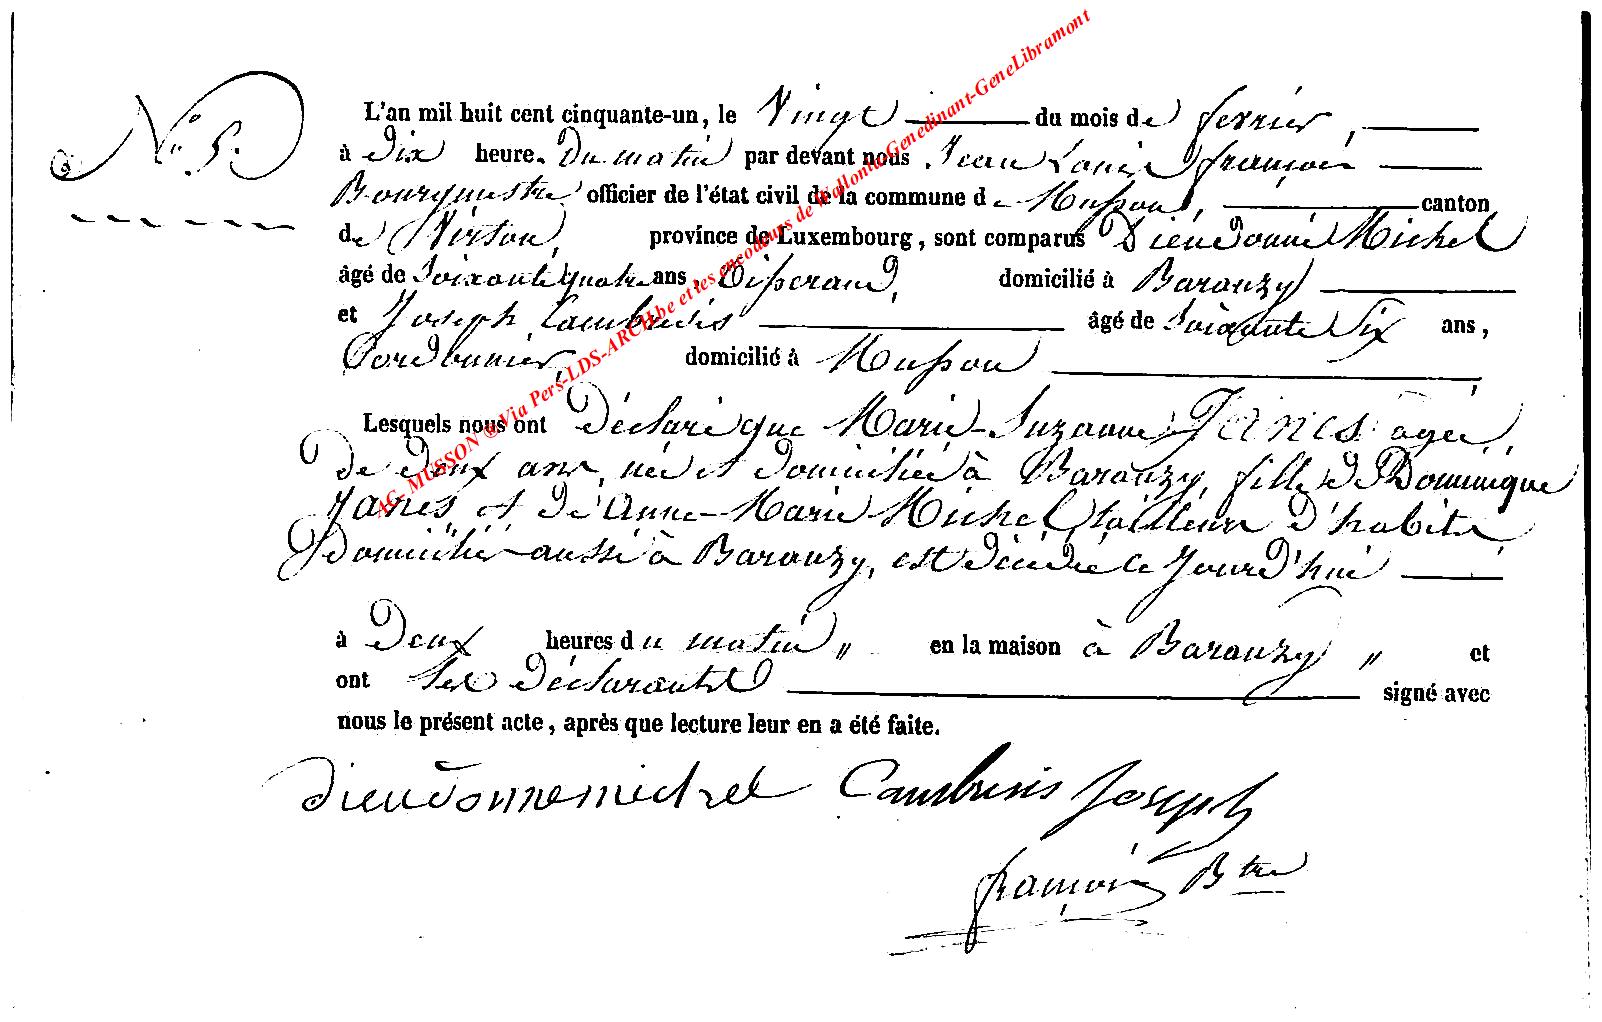 N° 5.
L'an mil huit cent cinquante-un, le Vingt du mois de fevrier,
à Dix heure. Du matin par devant nous Jean Louis françois
Bourgmestre officier de l'état civil de la commune de Musson, canton
de Virton, province de Luxembourg, sont comparus Dieudonné Michel
âgé de Soixante quatre ans, Tisserand, domicilié à Baranzy
et Joseph Cambresis âgé de Soixante Six ans,
Cordonnier, domicilié à Musson
Lesquels nous ont Déclaré que Marie-Suzanne Janes agée,
De deux ans, née et domiciliée à Baranzy, fille de Dominique
Janes et de Anne-Marie Michel, tailleur d'habits,
Domicilié aussi à Baranzy, est décédée ce jourd'hui
à Deux heures du matin " en la maison à Baranzy " et
ont les Déclarants signé avec
nous le présent acte, après que lecture leur en a été faite.
dieudonnemichel Cambresis Joseph
françois Btre
AG- MUSSON ®Via Pers-LDS-ARCH.be et les encodeurs de Wallonia-Genedinant-GeneLibramont